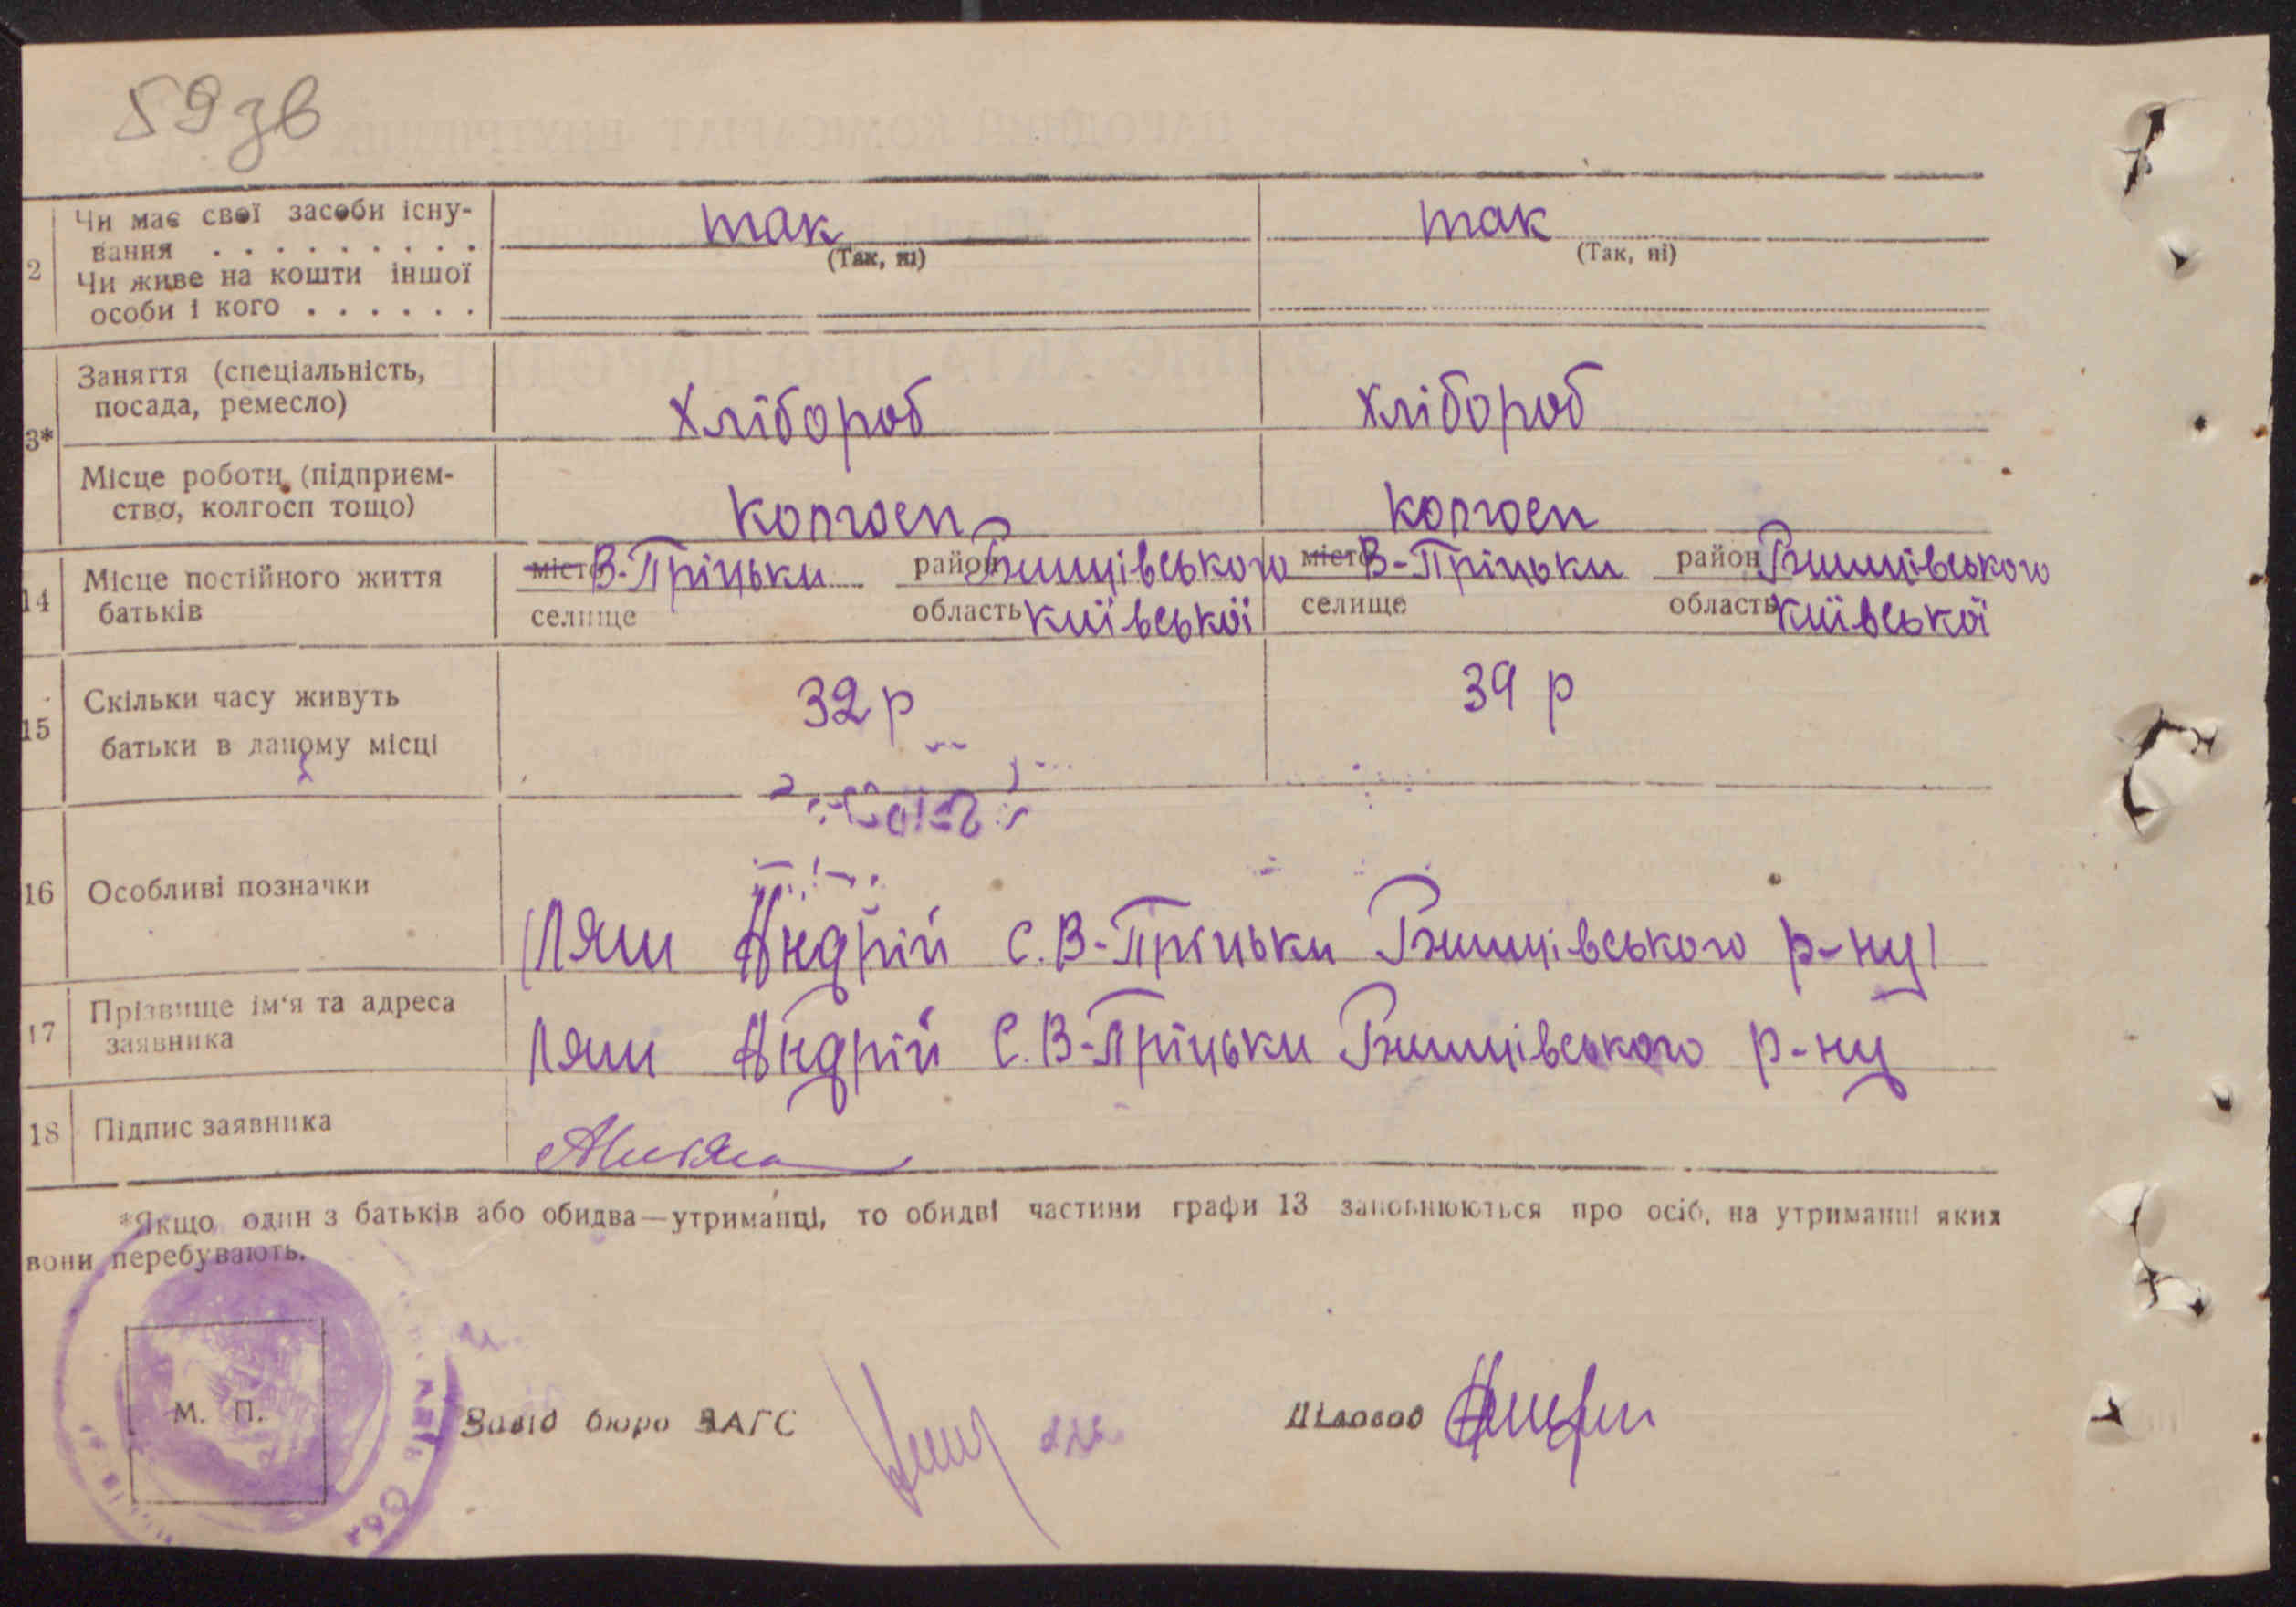 59зв
2 Чи має свої засоби існу-
вання . . . . . . . . . так (Так, ні) так (Так, ні)
Чи живе на кошти іншої
особи і кого . . . . . .
3* Заняття (спеціальність,
посада, ремесло) Хлібороб Хлібороб
Місце роботи (підприєм-
ство, колгосп тощо) Колгосп Колгосп
14 Місце постійного життя місто В-Пріцьки район Ржищівського місто В-Пріцьки район Ржищівського
батьків селище область Київської селище область Київської
15 Скільки часу живуть 32 р 39 р
батьки в даному місці
16 Особливі позначки
Ляш Андрій С. В-Пріцьки Ржищівського р-ну
17 Прізвище ім'я та адреса
заявника Ляш Андрій С. В-Пріцьки Ржищівського р-ну
18 Підпис заявника
*Якщо один з батьків або обидва—утриманці, то обидві частини графи 13 заповнюються про осіб, на утриманні яких
вони перебувають.
М. П.
Завід бюро ЗАГС Діловод